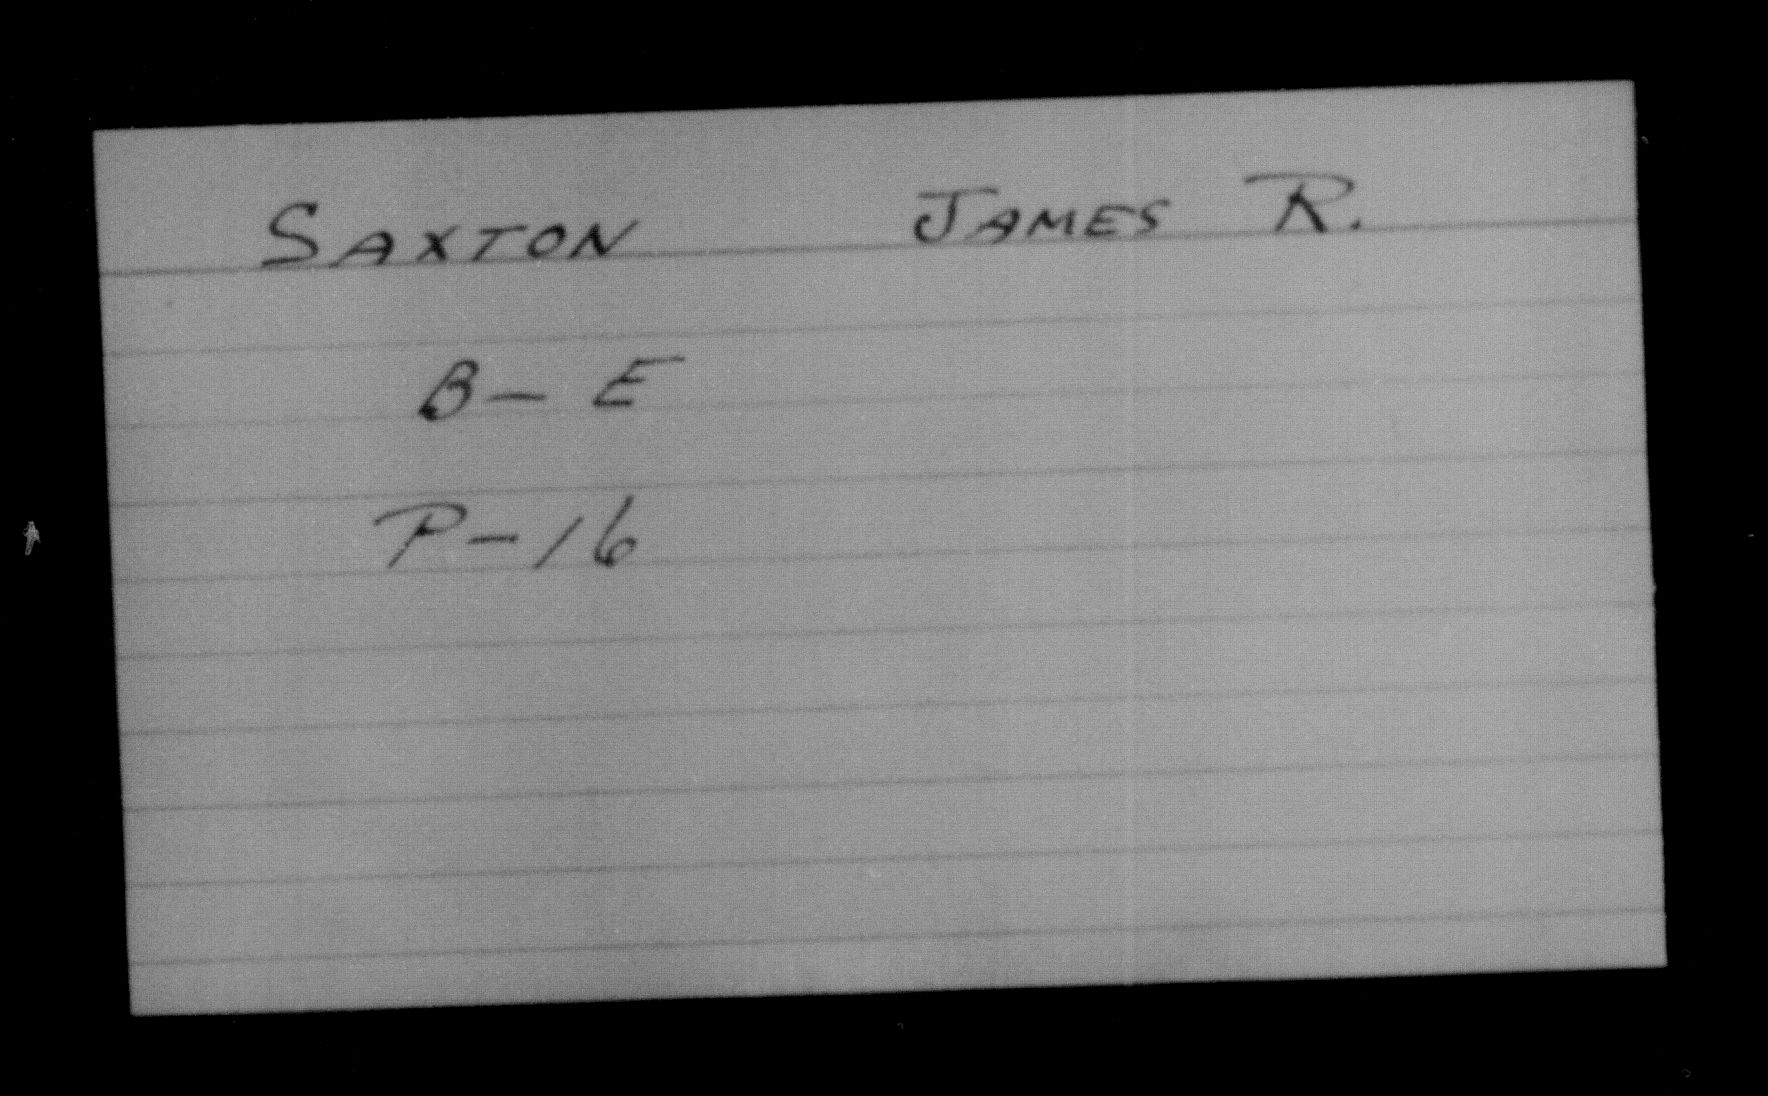 SAXTON JAMES R.
B- E
P-16